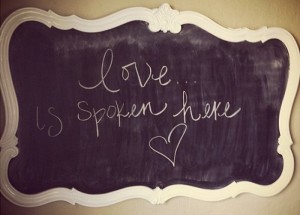 love...
is spoken here